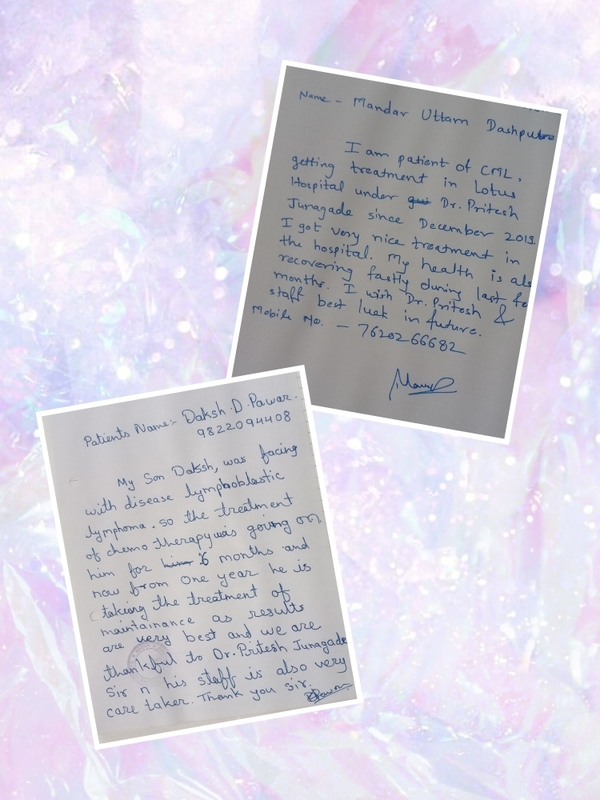 Name - Mandar Uttam Dashputre
I am patient of CML,
getting treatment in Lotus
Hospital under Dr. Pritesh
Junagade since December 2019.
I got very nice treatment in
the hospital. My health is als
recovering fastly during last fe
months. I wish Dr. Pritesh &
staff best luck in future.
Mobile No. - 7620266682
Patients Name:- Daksh.D.Pawar.
9822094408
My Son Daksh, was facing
with disease lymphoblastic
lymphoma. so the treatment
of chemo therapy was going on
him for 6 months and
now from one year he is
taking the treatment of
maintainance as results
are very best and we are
thankful to Dr. Pritesh Junagade
Sir n his staff is also very
care taker. Thank you Sir.